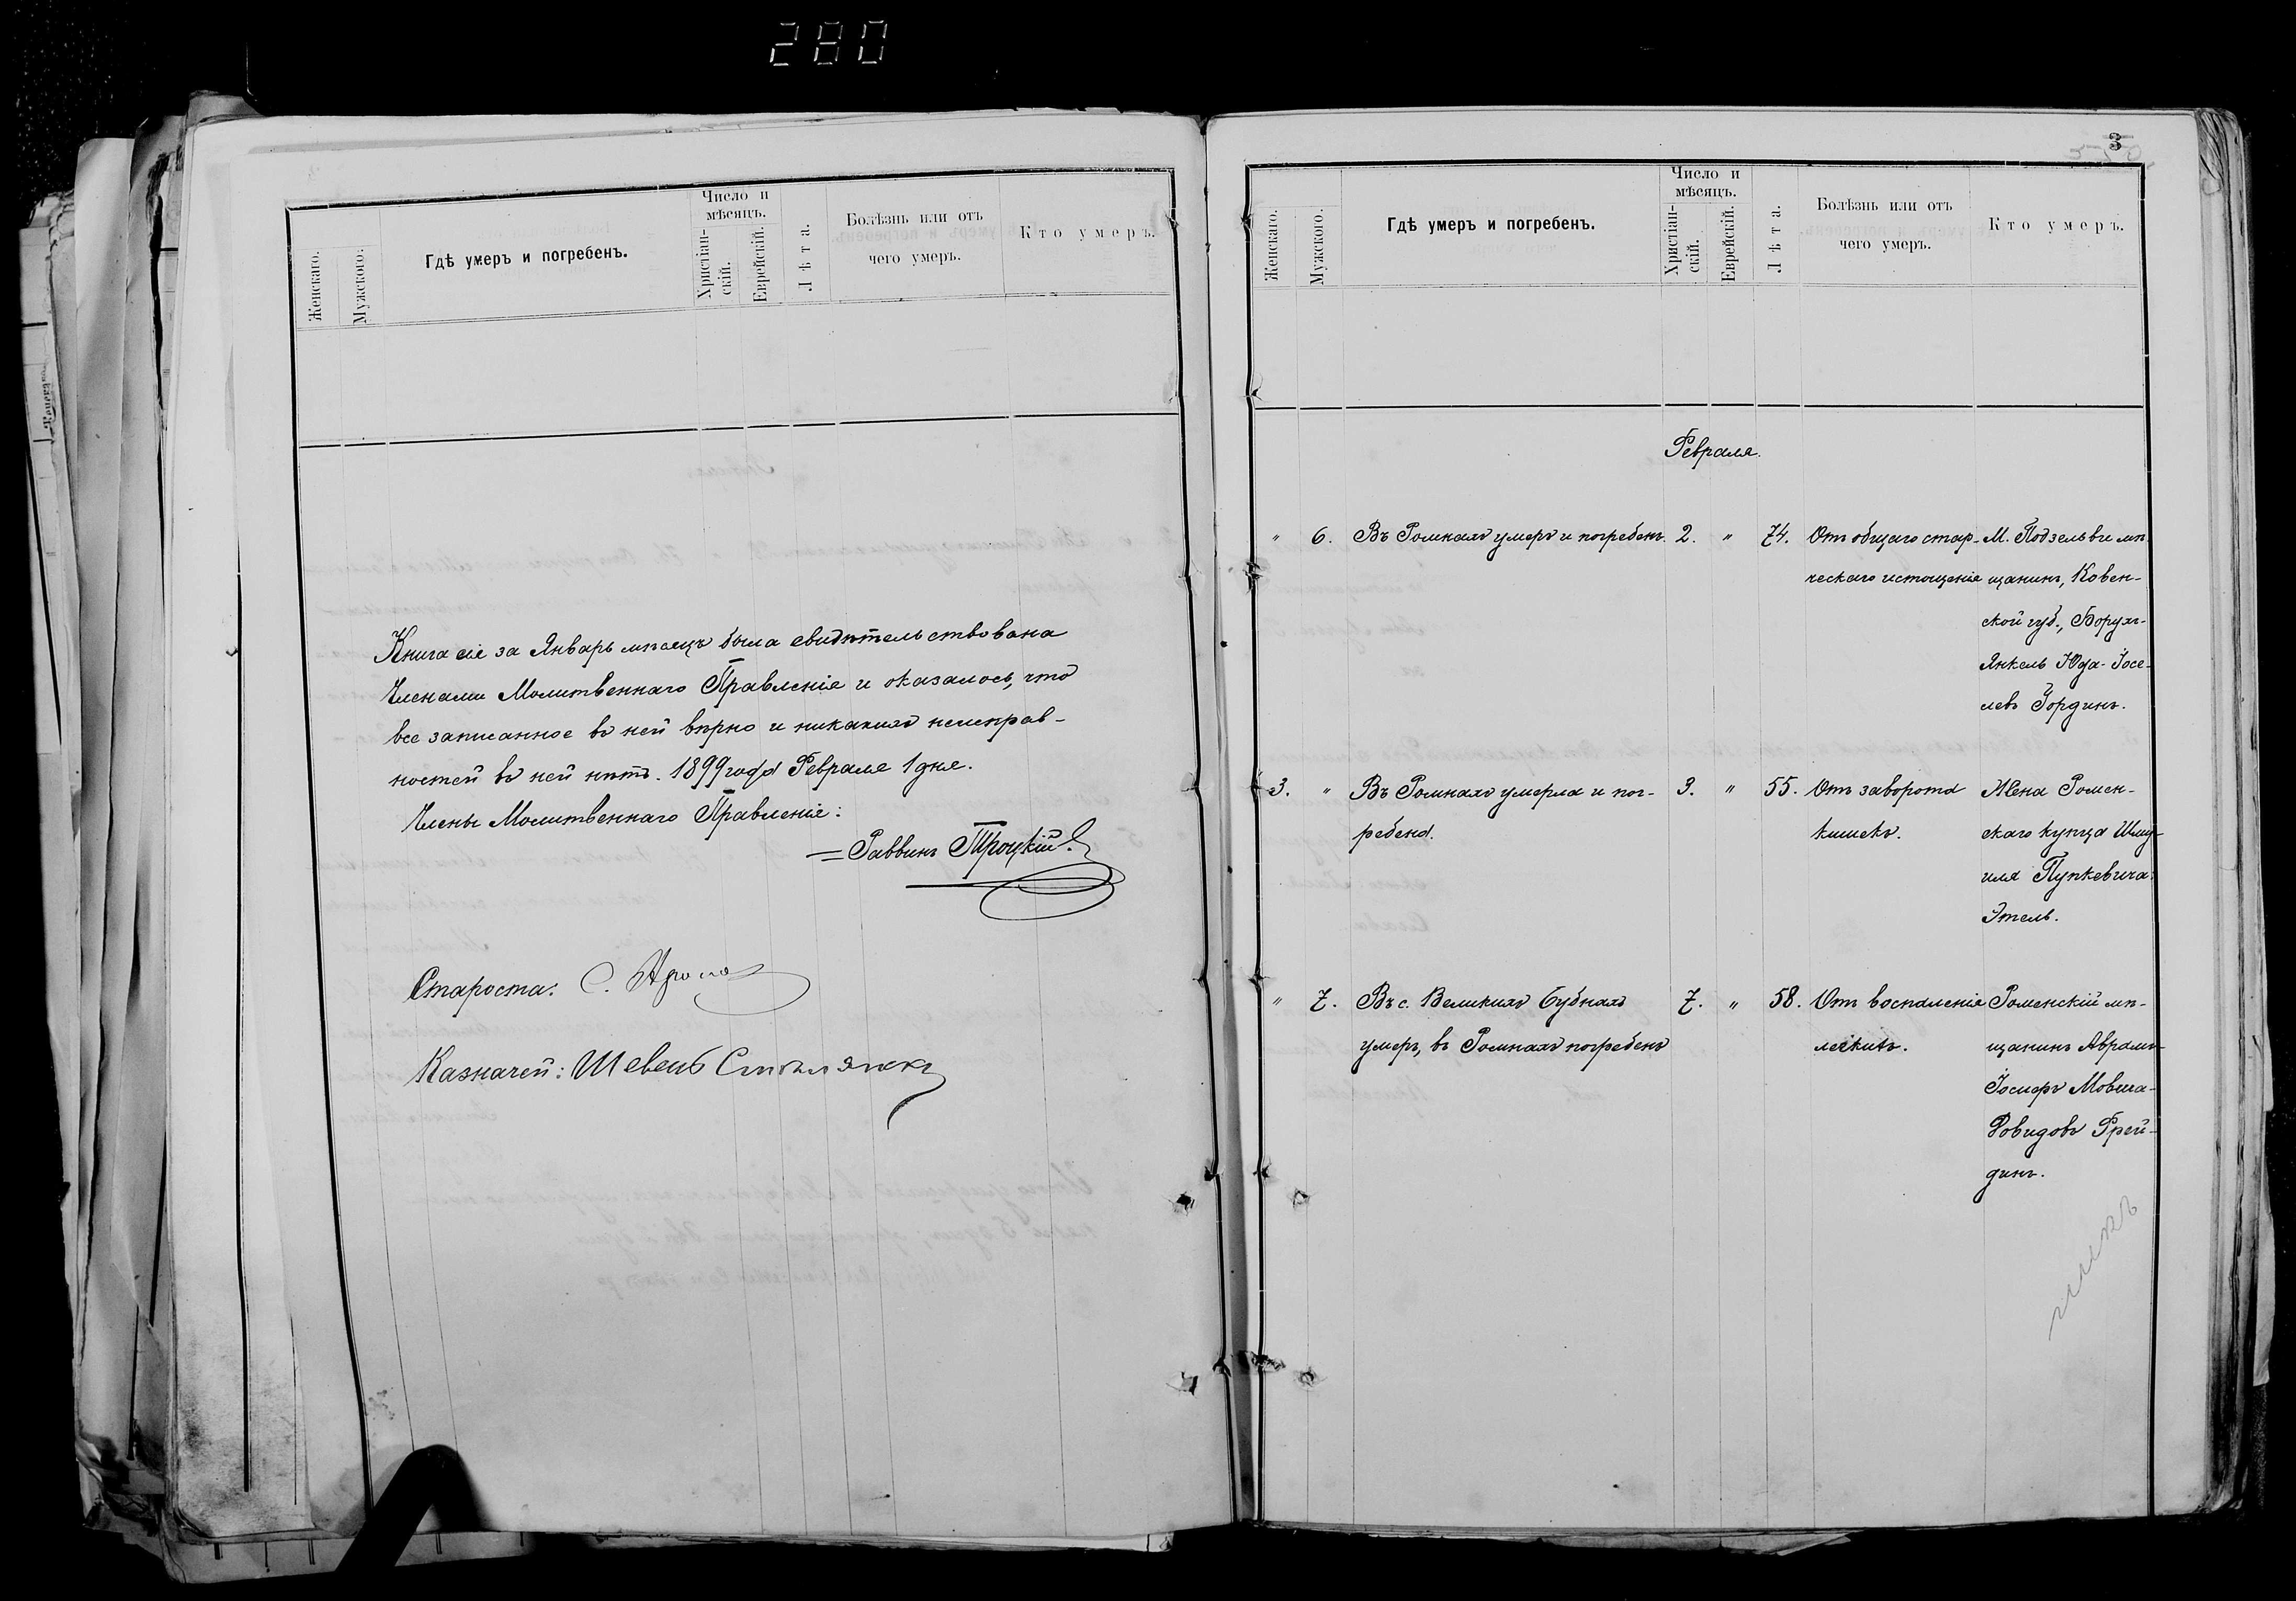 280
Женскаго.
Мужского.
Гдѣ умеръ и погребенъ.
Число и
мѣсяцъ.
Христіан-
скій.
Еврейскій.
Лѣта.
Болѣзнь или отъ
чего умеръ.
Кто умеръ.
Книга сія за Январь мѣсяцъ была свидѣтельствована
Членами Молитвеннаго Правленія и оказалось, что
все записанное въ ней вѣрно и никакихъ неисправ-
ностей въ ней нѣтъ. 1899 года Февраля 1 дня.
Члены Молитвеннаго Правленія:
Раввинъ Троцкій.
Староста: С.
Казначей: Шевель
3
Женскаго.
Мужского.
Гдѣ умеръ и погребенъ.
Число и
мѣсяцъ.
Христіан-
скій.
Еврейскій.
Лѣта.
Болѣзнь или отъ
чего умеръ.
Кто умеръ.
Февраля.
" 6. Въ Ромнахъ умеръ и погребенъ. 2. " 74. Отъ общаго стар- М. Подзельве мѣ-
ческаго истощенія щанинъ, Ковен-
ской губ., Борухъ-
Янкель Юда-Іосе-
левъ Іординъ.
3. " Въ Ромнахъ умерла и пог- 3. " 55. Отъ заворота Жена Ромен-
ребена. кишекъ. скаго купца Шму-
иля Пункевича
Этель.
" 7. Въ с. Великихъ Бубнахъ 7. " 58. Отъ воспаленія Роменскій мѣ-
умеръ, въ Ромнахъ погребенъ легкихъ. щанинъ Аврамъ-
Іосифъ Мовша-
Довидовъ Фрей-
динъ.